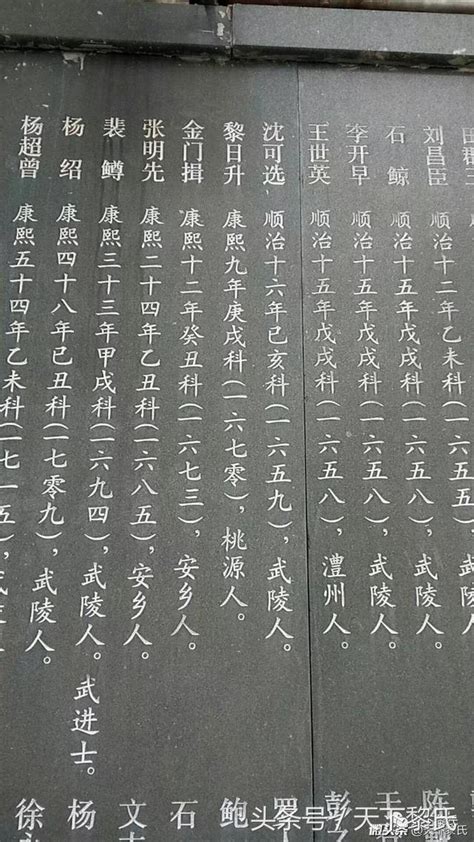 刘昌臣 顺治十二年乙未科(一六五五),武陵人。
石 鲸 顺治十五年戊戌科(一六五八),武陵人。
李开早 顺治十五年戊戌科(一六五八),武陵人。
王世英 顺治十五年戊戌科(一六五八),澧州人。
沈可选 顺治十六年已亥科(一六五九),武陵人。
黎日升 康熙九年庚戌科(一六七零),桃源人。
金门揖 康熙十二年癸丑科(一六七三),安乡人。
张明先 康熙二十四年乙丑科(一六八五),安乡人。
裴 鳟 康熙三十三年甲戌科(一六九四),武陵人。
杨 绍 康熙四十八年已丑科(一七零九),武陵人。武进士。
杨超曾 康熙五十四年乙未科(一七一五),
陈
王
彭
鲍
石
文
杨
徐
头条号/天下黎氏